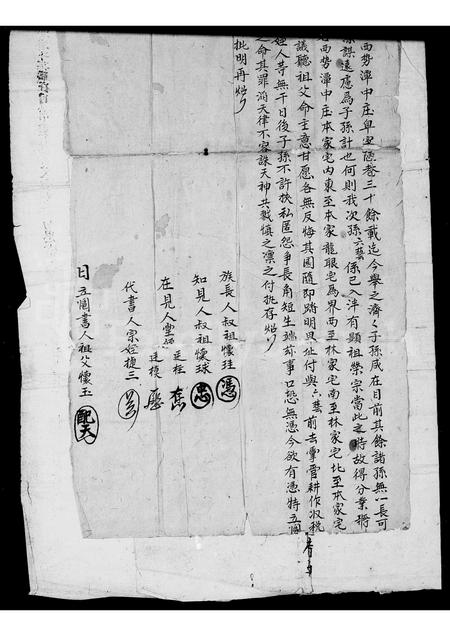 西勢潭中庄卑室
三十餘載迄今舉之濟々子孫咸在目前其餘諸孫無一長可
謀遠慮為子孫計也何則我次孫六藝係已入泮有顯祖榮宗當此之時故得分業將
西勢潭中庄本家宅內東至本家龍眼宅為界西至林家宅南至林家宅北至本家宅
議聽祖父命主意甘愿各無反悔其園隨即踏明界址付與六藝前去掌管耕作收稅
姪人等無干日後子孫不許挾私匿怨爭長角短生端滋事口恐無憑今欲有憑特立鬮
之命其罪滔天律不容誅天神共戮慎之凜之付執存炤
批明再炤
族長人叔祖懷珪 憑
知見人叔祖懷球 忠
在見人
代書人宗姪捷三
日立鬮書人祖父懷玉 配天